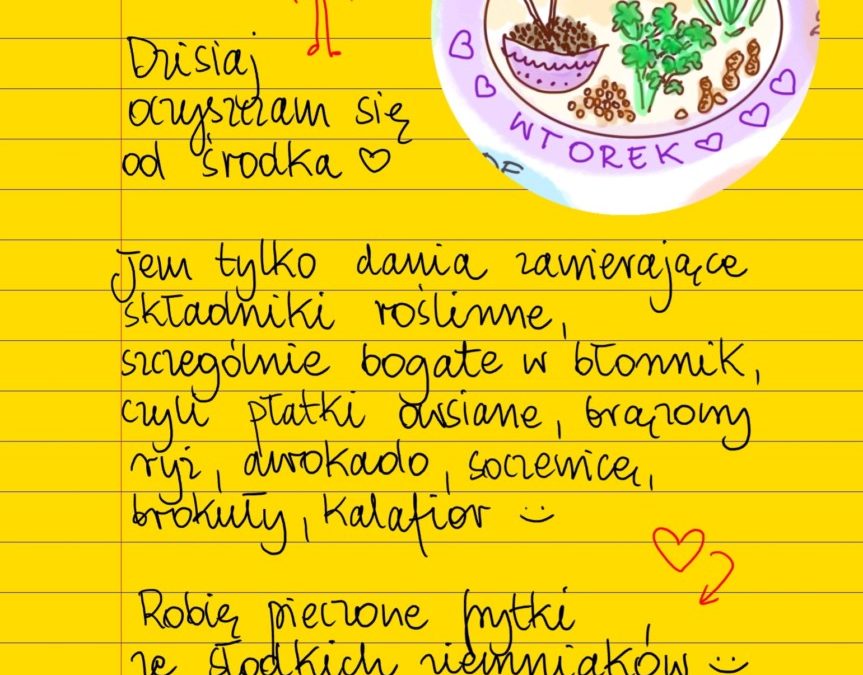 Dzisiaj
oczyszczam się
od środka ♡
WTOREK
Jem tylko dania zawierające
składniki roślinne,
szczególnie bogate w błonnik,
czyli płatki owsiane, brązowy
ryż, awokado, soczewicę,
brokuły, kalafior :)
Robię pieczone frytki
ze słodkich ziemniaków :)